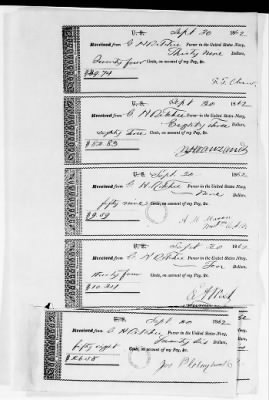 Sept 20 1862
Received from C H Ritchie Purser in the United States Navy,
Thirty Nine Dollars,
Cents, on account of my Pay, &c.
Sept 20 1862
Received from C H Ritchie Purser in the United States Navy,
Eighty three Dollars,
eighty three Cents, on account of my Pay, &c.
$83.83
Sept 20 1862
Received from C H Ritchie Purser in the United States Navy,
Nine Dollars,
fifty nine Cents, on account of my Pay, &c.
$9.59
Sept 20 1862
Received from C H Ritchie Purser in the United States Navy,
Ten Dollars,
thirty four Cents, on account of my Pay, &c.
$10.34
Sept 20 1862
Received from C H Ritchie Purser in the United States Navy,
Twenty six Dollars,
fifty eight Cents, on account of my Pay, &c.
$26.58